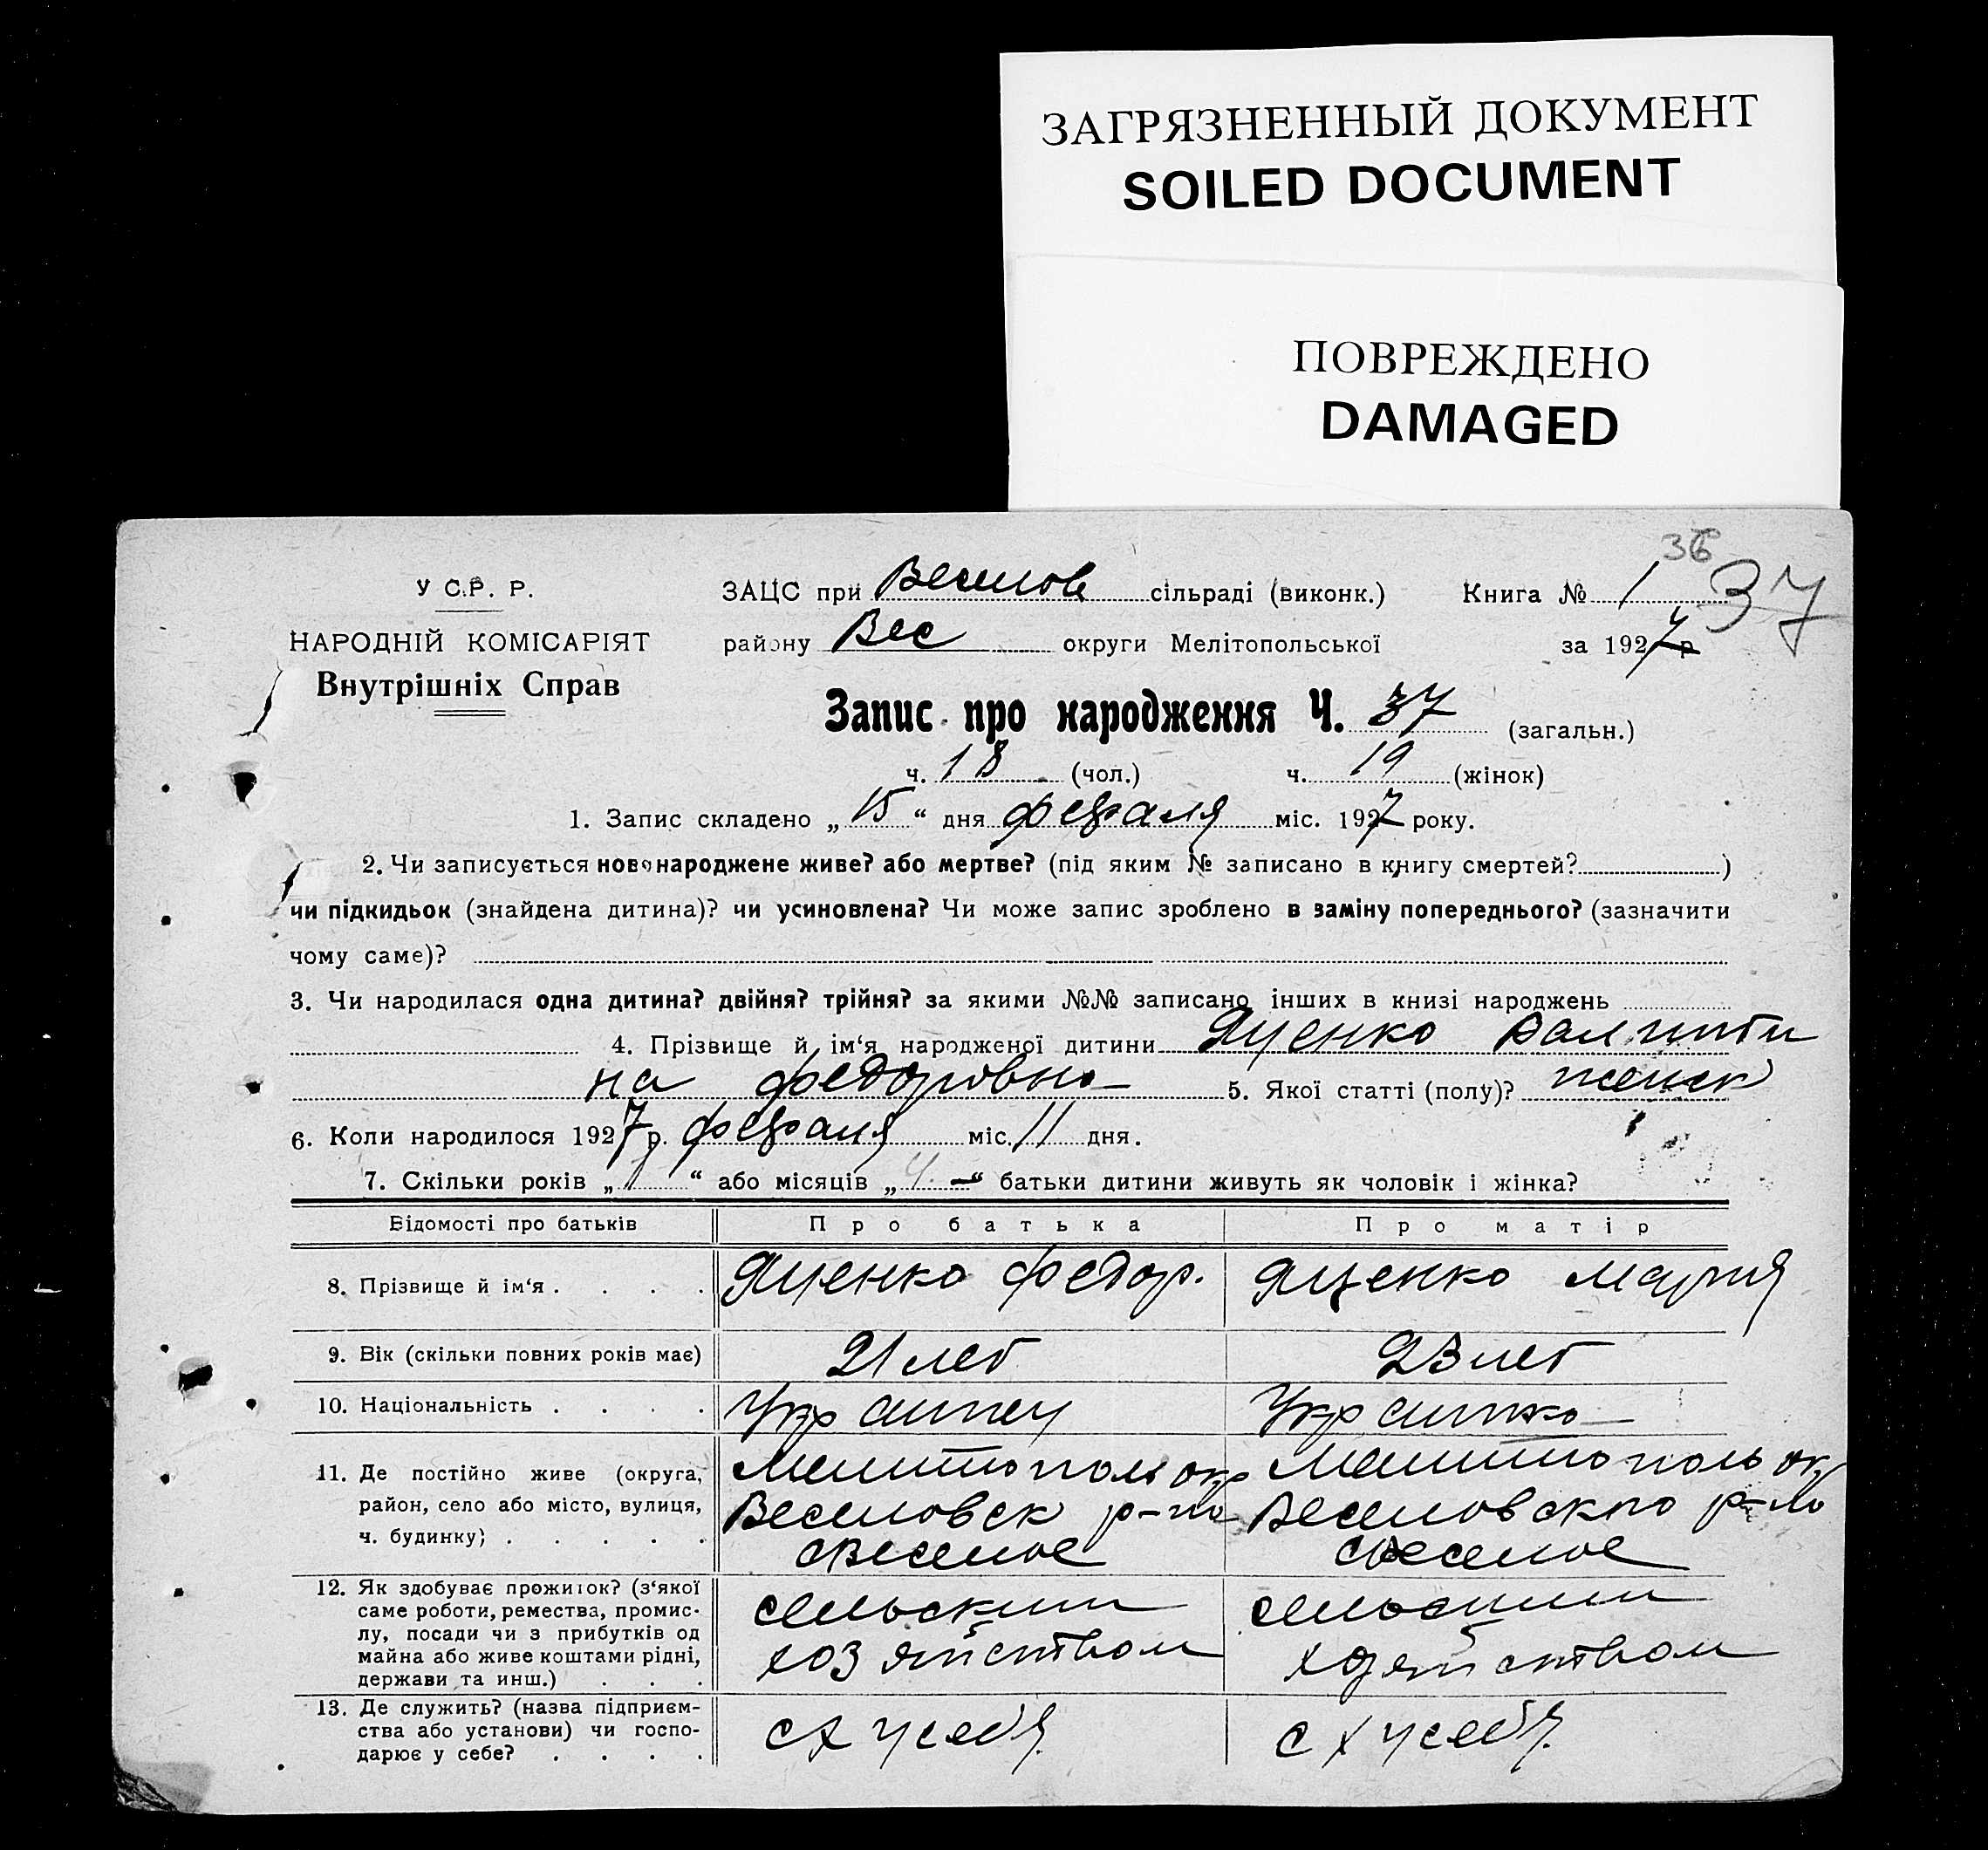 ЗАГРЯЗНЕННЫЙ ДОКУМЕНТ
SOILED DOCUMENT
ПОВРЕЖДЕНО
DAMAGED
36
37
У С.Р. Р.
НАРОДНІЙ КОМІСАРІЯТ
Внутрішніх Справ
ЗАЦС при Веселов сільраді (виконк.) Книга № 1
району Вес округи Мелітопольської за 1927 р
Запис про народження Ч. 37 (загальн.)
ч. 18 (чол.) ч. 19 (жінок)
1. Запис складено „ 15 “ дня февраля міс. 1927 року.
2. Чи записується новонароджене живе? або мертве? (під яким № записано в книгу смертей? )
чи підкидьок (знайдена дитина)? чи усиновлена? Чи може запис зроблено в заміну попереднього? (зазначити
чому саме)?
3. Чи народилася одна дитина? двійня? трійня? за якими №№ записано інших в книзі народжень
4. Прізвище й ім‘я народженої дитини Яценко
на Федоровна 5. Якої статті (полу)? женск
6. Коли народилося 1927 р. февраля міс. 11 дня.
7. Скільки років „ 1 “ або місяців „ “ батьки дитини живуть як чоловік і жінка?
Відомості про батьків Про батька Про матір
8. Прізвище й ім‘я . . . . Яценко Федор. Яценко Мария
9. Вік (скільки повних років має) 21 лет 23 лет
10. Національність . . . . Украинец Украинка
11. Де постійно живе (округа, Мелитополь окр Мелитополь ок
район, село або місто, вулиця, Веселовск р-на Веселовского р-на
ч. будинку) . . . . . с Веселое с Веселое
12. Як здобуває прожиток? (з‘якої
саме роботи, ремества, промис-
лу, посади чи з прибутків од
майна або живе коштами рідні,
держави та инш.) . . .
сельским сельским
хозяйством хозяйством
13. Де служить? (назва підприєм-
ства або установи) чи госпо-
дарює у себе? . . . .
с х у себя. с х у себя.